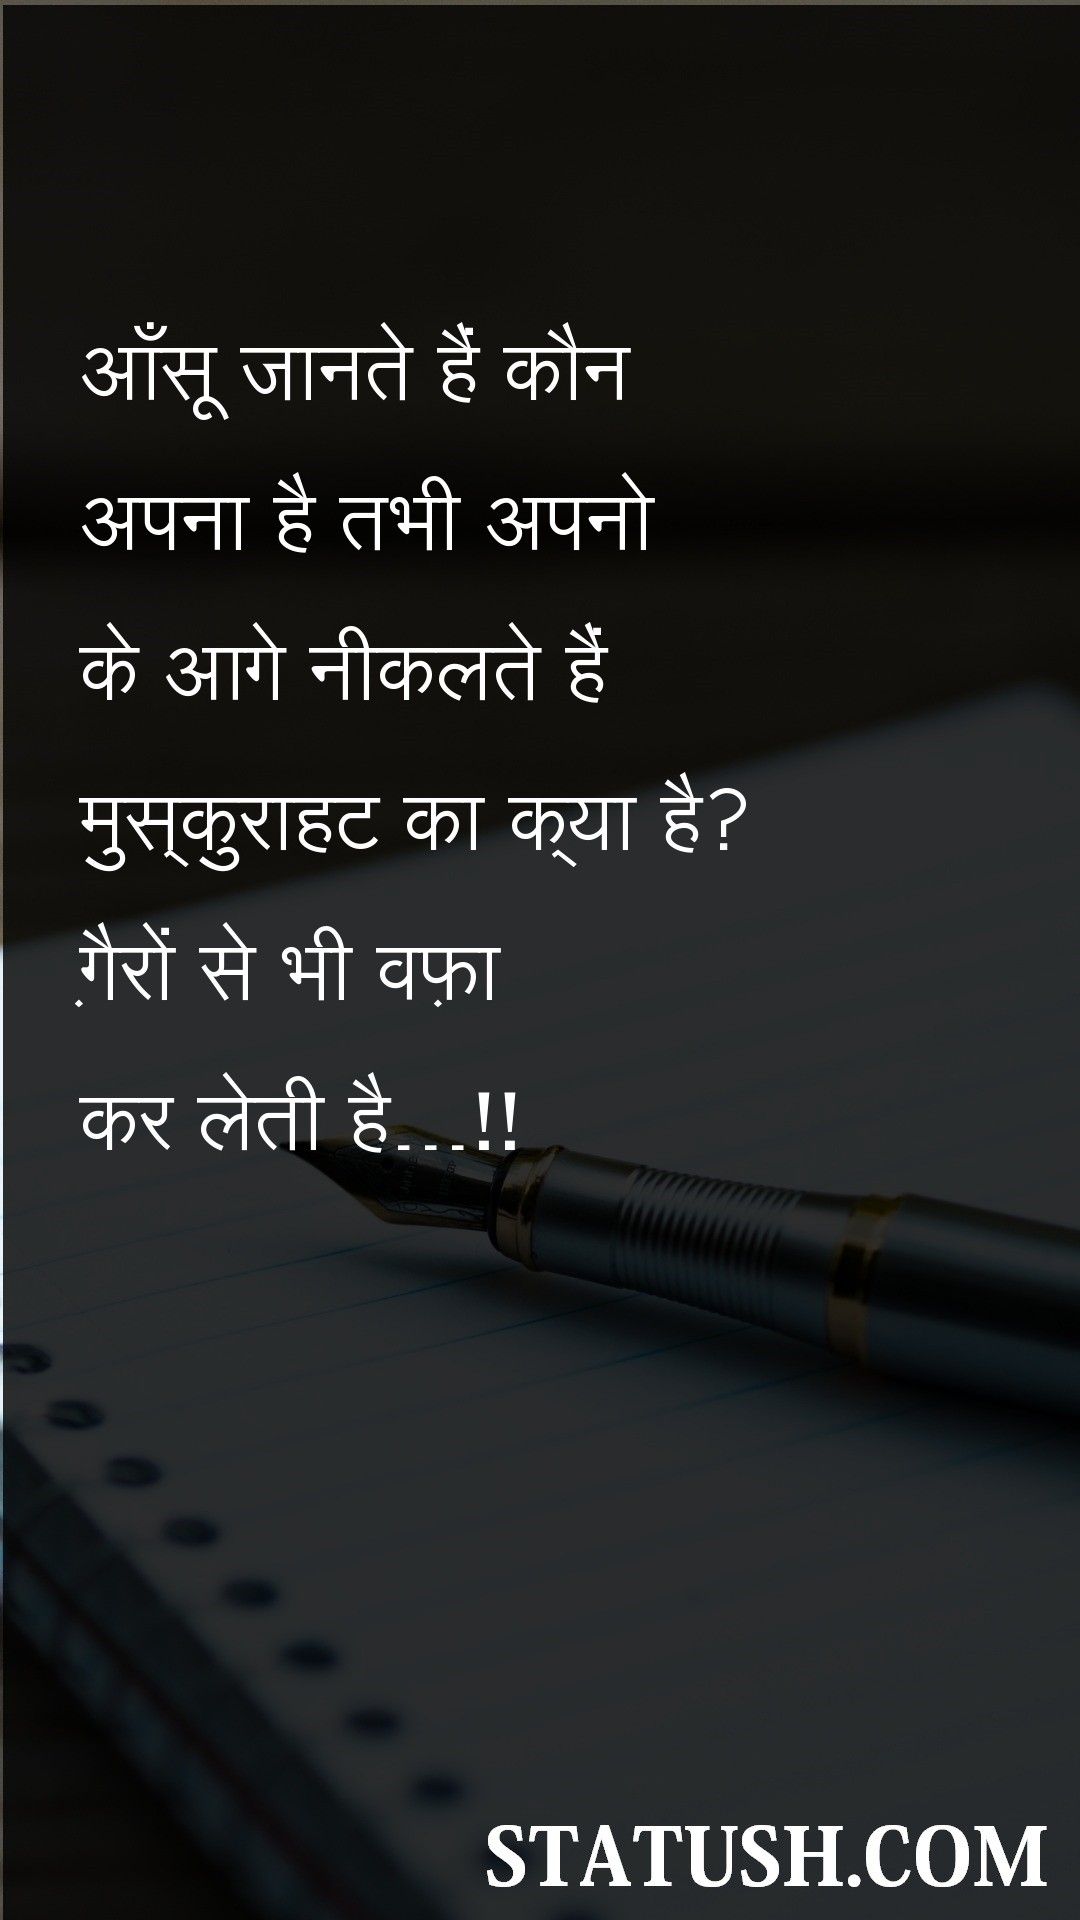 आँसू जानते हैं कौन
अपना है तभी अपनो
के आगे नीकलते हैं
मुस्‌कुराहट का क्‌या है?
ग़ैरों से भी वफ़ा
कर लेती है...!!
STATUSH.COM